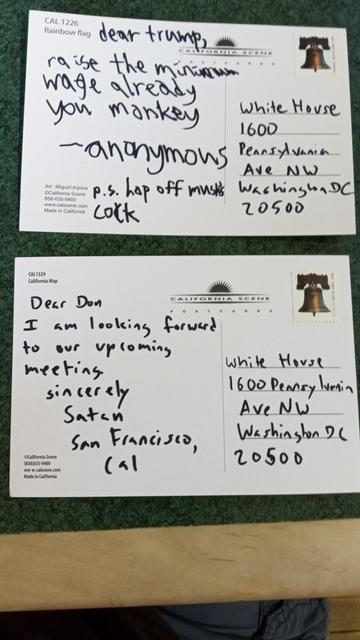 CAL 1226
Rainbow flag
dear trump,
CALIFORNIA SCENE
POSTCARDS
raise the minimum
wage already
you monkey
—anonymous
p.s. hop off musk's
cock
White House
1600
Pennsylvania
Ave NW
Washington, DC
20500
Art: Miguel Arjona
©California Scene
858-635-9400
www.calscene.com
Made in California
CAL1329
California Map
CALIFORNIA SCENE
POSTCARDS
Dear Don
I am looking forward
to our upcoming
meeting
sincerely
Satan
San Francisco,
Cal
White House
1600 Pennsylvania
Ave NW
Washington DC
20500
©California Scene
(858)635-9400
www.calscene.com
Made in California